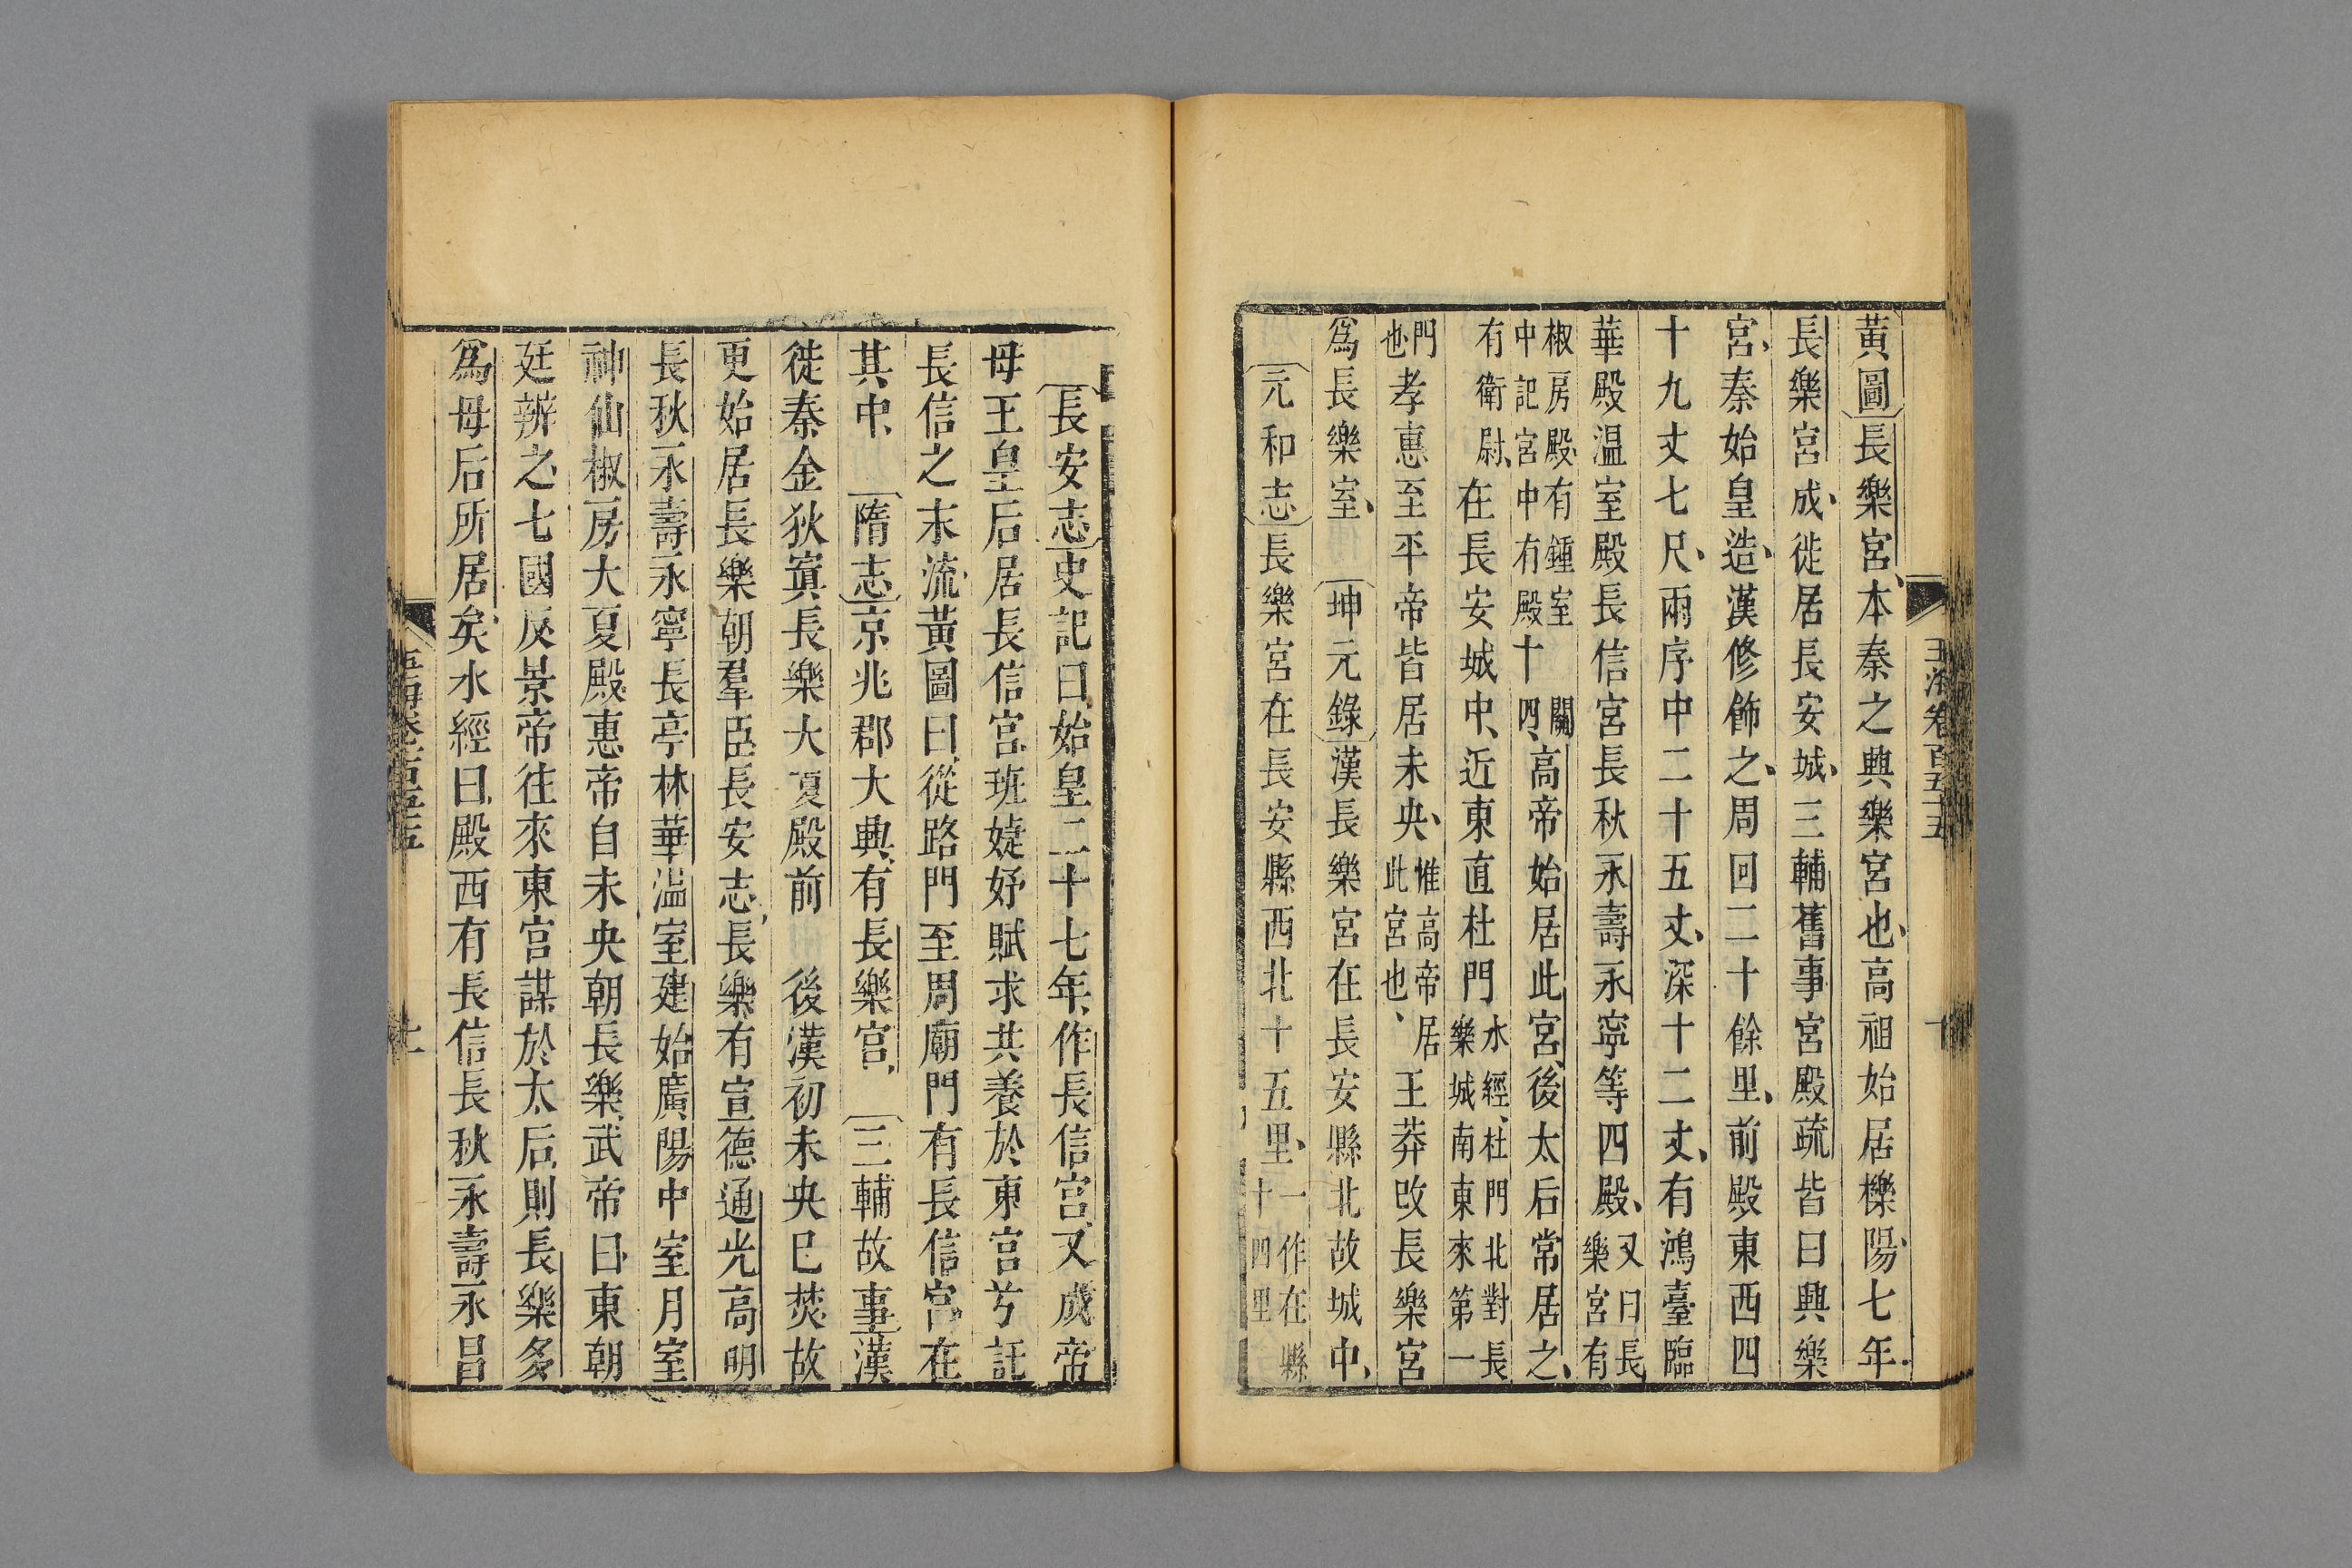 黃圖長樂宮、本秦之興樂宮也、高祖始居櫟陽、七年、
長樂宮成、徙居長安城、三輔舊事宮殿疏皆曰興樂
宮、秦始皇造、漢修飾之、周回二十餘里、前殿東西四
十九丈七尺、兩序中二十五丈、深十二丈、有鴻臺臨
華殿溫室殿長信宮長秋永壽永寧等四殿、又曰長樂宮有
椒房殿有鍾室中記宮中有殿十四闕、高帝始居此宮、後太后常居之、
有衛尉、在長安城中、近東直杜門水經、杜門北對長樂城南東來第一
門也、孝惠至平帝皆居未央、惟高帝居此宮也、王莽改長樂宮
爲長樂室、坤元錄漢長樂宮在長安縣北故城中、
元和志長樂宮在長安縣西北十五里、一作在縣十四里
玉海卷百五十五
十
長安志史記曰、始皇二十七年、作長信宮、又成帝
母王皇后居長信宮、班婕妤賦求共養於東宮兮託
長信之末流、黃圖曰、從路門至周廟門有長信宮、在
其中、隋志京兆郡大興、有長樂宮、三輔故事漢
徙秦金狄寘長樂大夏殿前後漢初未央已焚故
更始居長樂朝羣臣長安志、長樂有宣德通光高明
長秋永壽永寧長亭林華溫室建始廣陽中室月室
神仙椒房大夏殿、惠帝自未央朝長樂、武帝曰、東朝
廷辨之、七國反景帝往來東宮謀於太后、則長樂多
爲母后所居矣、水經曰、殿西有長信長秋永壽永昌